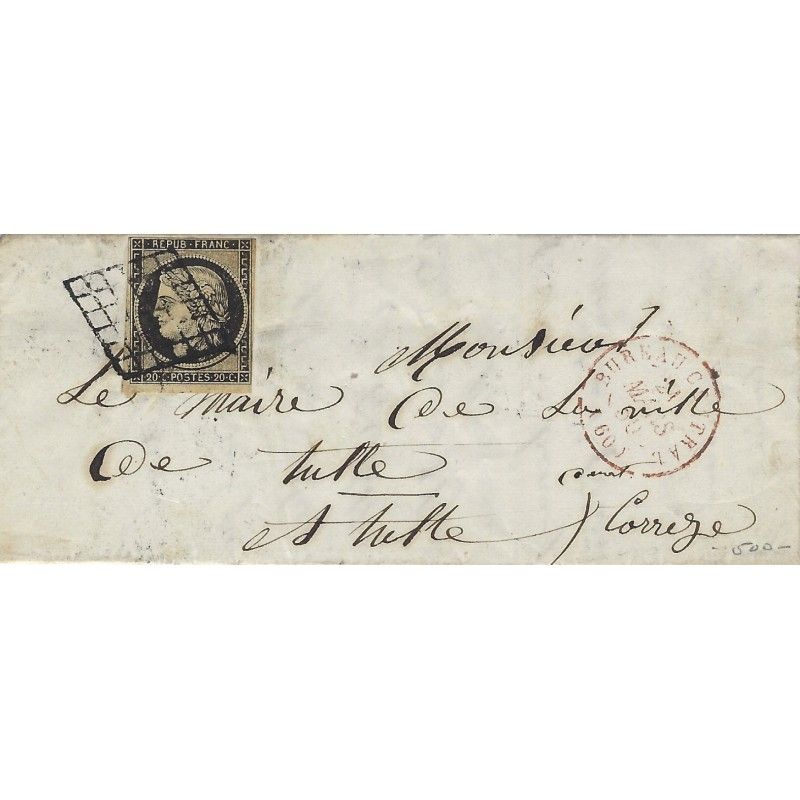 REPUB·FRANC·
20·C·POSTES·20·C·
Monsieur
Le Maire De La ville
De tulle
A tulle Correze
BUREAU CENTRAL (60)
MARS
500